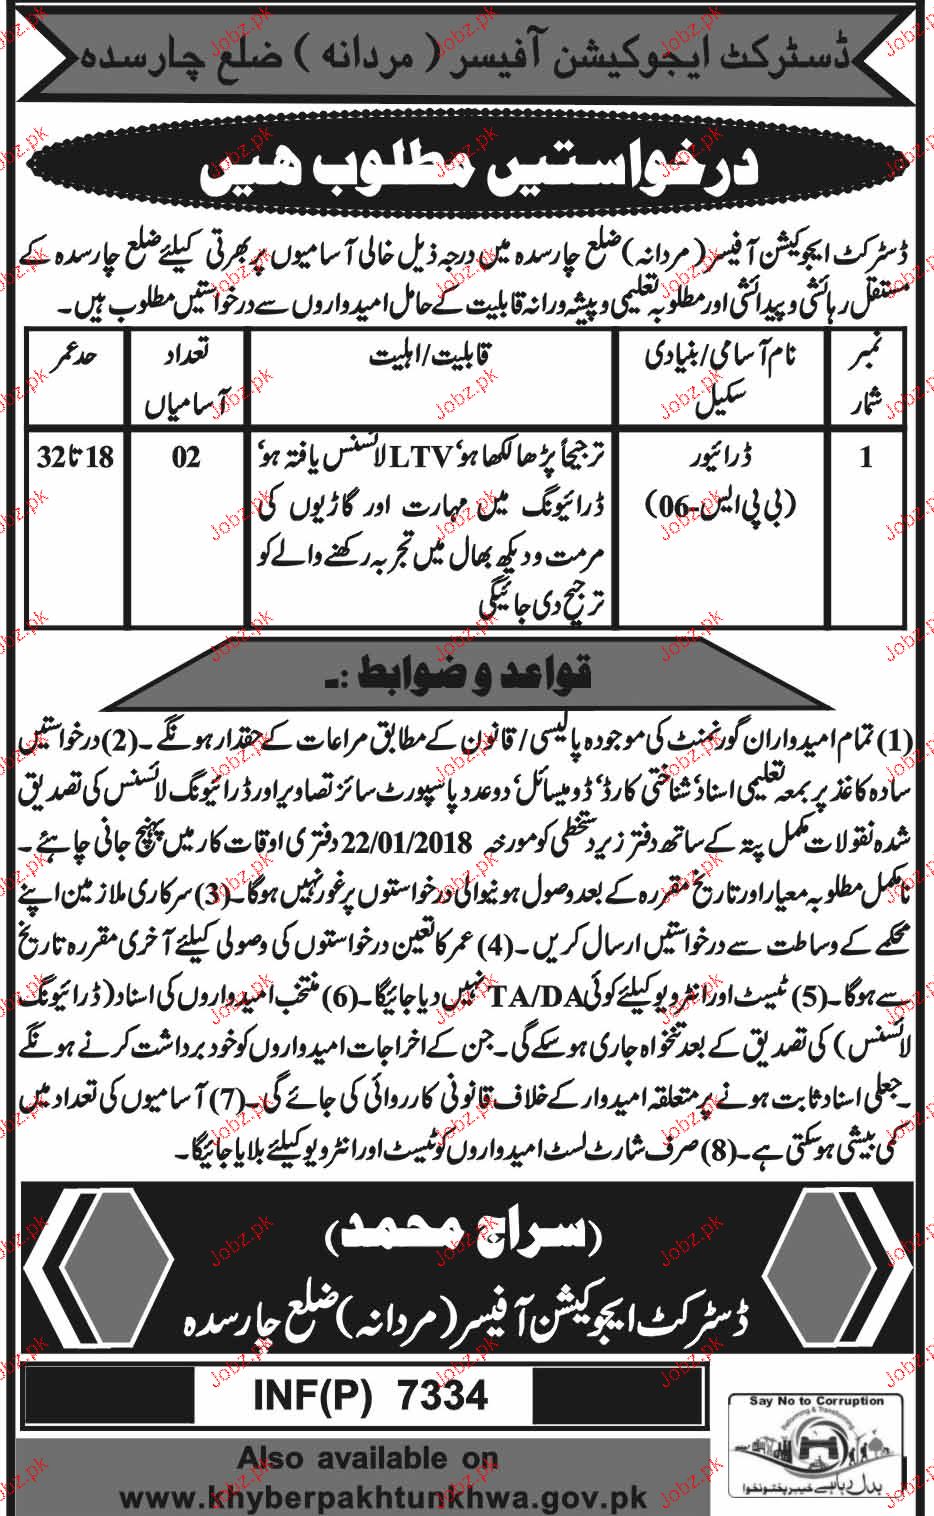 ڈسٹرکٹ ایجوکیشن آفیسر (مردانہ) ضلع چارسدہ
درخواستیں مطلوب ہیں
ڈسٹرکٹ ایجوکیشن آفیسر (مردانہ) ضلع چارسدہ میں درجہ ذیل خالی آسامیوں پر بھرتی کیلئے ضلع چارسدہ کے
مستقل رہائشی و پیدائشی اور مطلوبہ تعلیمی و پیشہ ورانہ قابلیت کے حامل امیدواروں سے درخواستیں مطلوب ہیں۔
نمبر شمار
نام آسامی/بنیادی سکیل
قابلیت/اہلیت
تعداد آسامیاں
حد عمر
1
ڈرائیور
(بی پی ایس-06)
ترجیحاً پڑھا لکھا ہو، LTV لائسنس یافتہ ہو،
ڈرائیونگ میں مہارت اور گاڑیوں کی
مرمت و دیکھ بھال میں تجربہ رکھنے والے کو
ترجیح دی جائیگی
02
18 تا 32
قواعد و ضوابط :۔
(1) تمام امیدواران گورنمنٹ کی موجودہ پالیسی/قانون کے مطابق مراعات کے حقدار ہونگے۔ (2) درخواستیں
سادہ کاغذ پر بمعہ تعلیمی اسناد، شناختی کارڈ، ڈومیسائل، دو عدد پاسپورٹ سائز تصاویر اور ڈرائیونگ لائسنس کی تصدیق
شدہ نقولات مکمل پتہ کے ساتھ دفتر زیر دستخطی کو مورخہ 22/01/2018 دفتری اوقات کار میں پہنچ جانی چاہئے۔
نامکمل مطلوبہ معیار اور تاریخ مقررہ کے بعد وصول ہونیوالی درخواستوں پر غور نہیں ہوگا۔ (3) سرکاری ملازمین اپنے
محکمے کے وساطت سے درخواستیں ارسال کریں۔ (4) عمر کا تعین درخواستوں کی وصولی کیلئے آخری مقررہ تاریخ
سے ہوگا۔ (5) ٹیسٹ اور انٹرویو کیلئے کوئی TA/DA نہیں دیا جائیگا۔ (6) منتخب امیدواروں کی اسناد (ڈرائیونگ
لائسنس) کی تصدیق کے بعد تنخواہ جاری ہوسکے گی۔ جن کے اخراجات امیدواروں کو خود برداشت کرنے ہونگے
۔ جعلی اسناد ثابت ہونے پر متعلقہ امیدوار کے خلاف قانونی کارروائی کی جائے گی۔ (7) آسامیوں کی تعداد میں
کمی بیشی ہوسکتی ہے۔ (8) صرف شارٹ لسٹ امیدواروں کو ٹیسٹ اور انٹرویو کیلئے بلایا جائیگا۔
(سراج محمد)
ڈسٹرکٹ ایجوکیشن آفیسر (مردانہ) ضلع چارسدہ
INF(P) 7334
Also available on
www.khyberpakhtunkhwa.gov.pk
Say No to Corruption
Reforming & Transforming
بدل رہا ہے خیبر پختونخوا
Jobz.pk